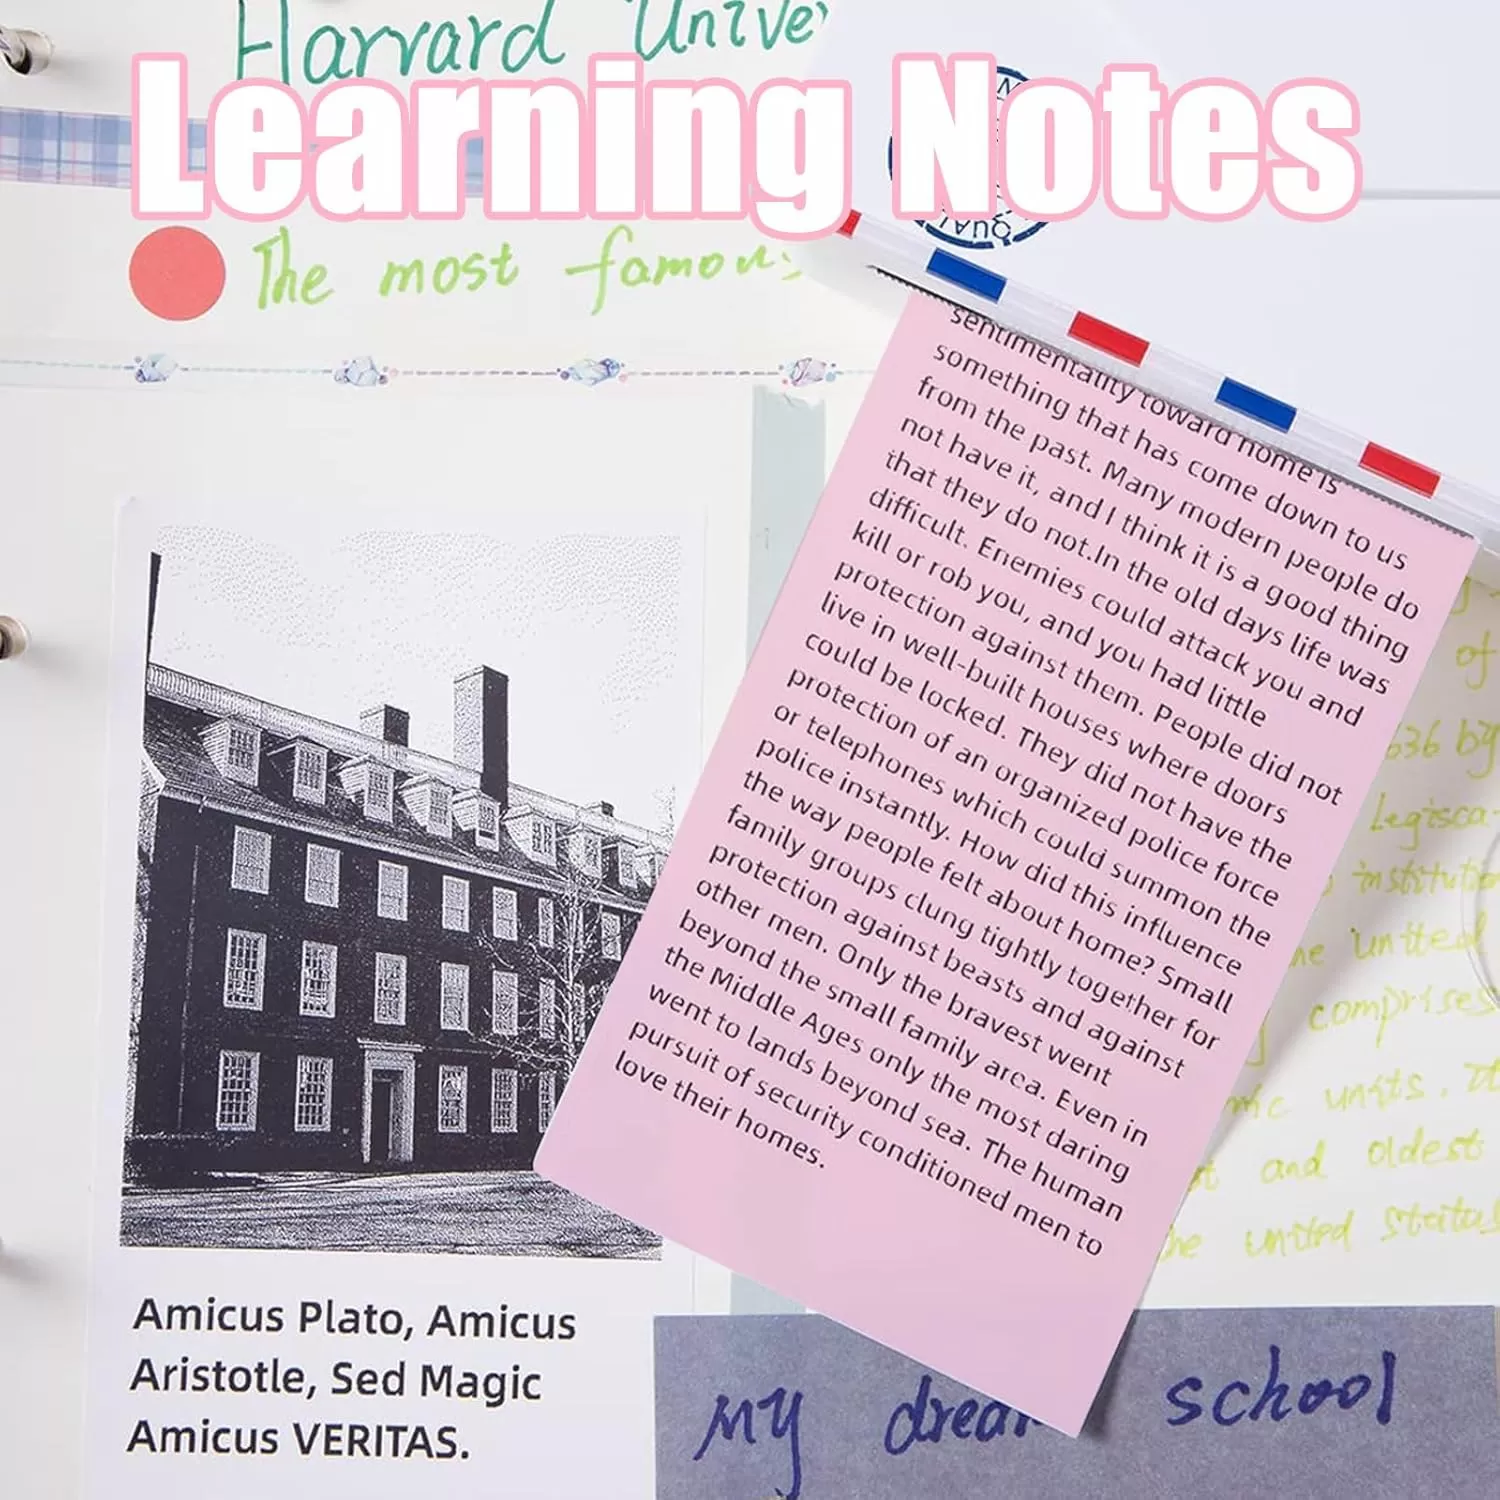 Harvard Unive
Learning Notes
QUAL
The most famous
sentimentality toward home is
something that has come down to us
from the past. Many modern people do
not have it, and I think it is a good thing
that they do not.In the old days life was
difficult. Enemies could attack you and
kill or rob you, and you had little
protection against them. People did not
live in well-built houses where doors
could be locked. They did not have the
protection of an organized police force
or telephones which could summon the
police instantly. How did this influence
the way people felt about home? Small
family groups clung tightly together for
protection against beasts and against
other men. Only the bravest went
beyond the small family area. Even in
the Middle Ages only the most daring
went to lands beyond sea. The human
pursuit of security conditioned men to
love their homes.
of
636 by
Legisca-
institution
united
comprises
units. It
and oldest
united status
Amicus Plato, Amicus
Aristotle, Sed Magic
Amicus VERITAS.
My dream school